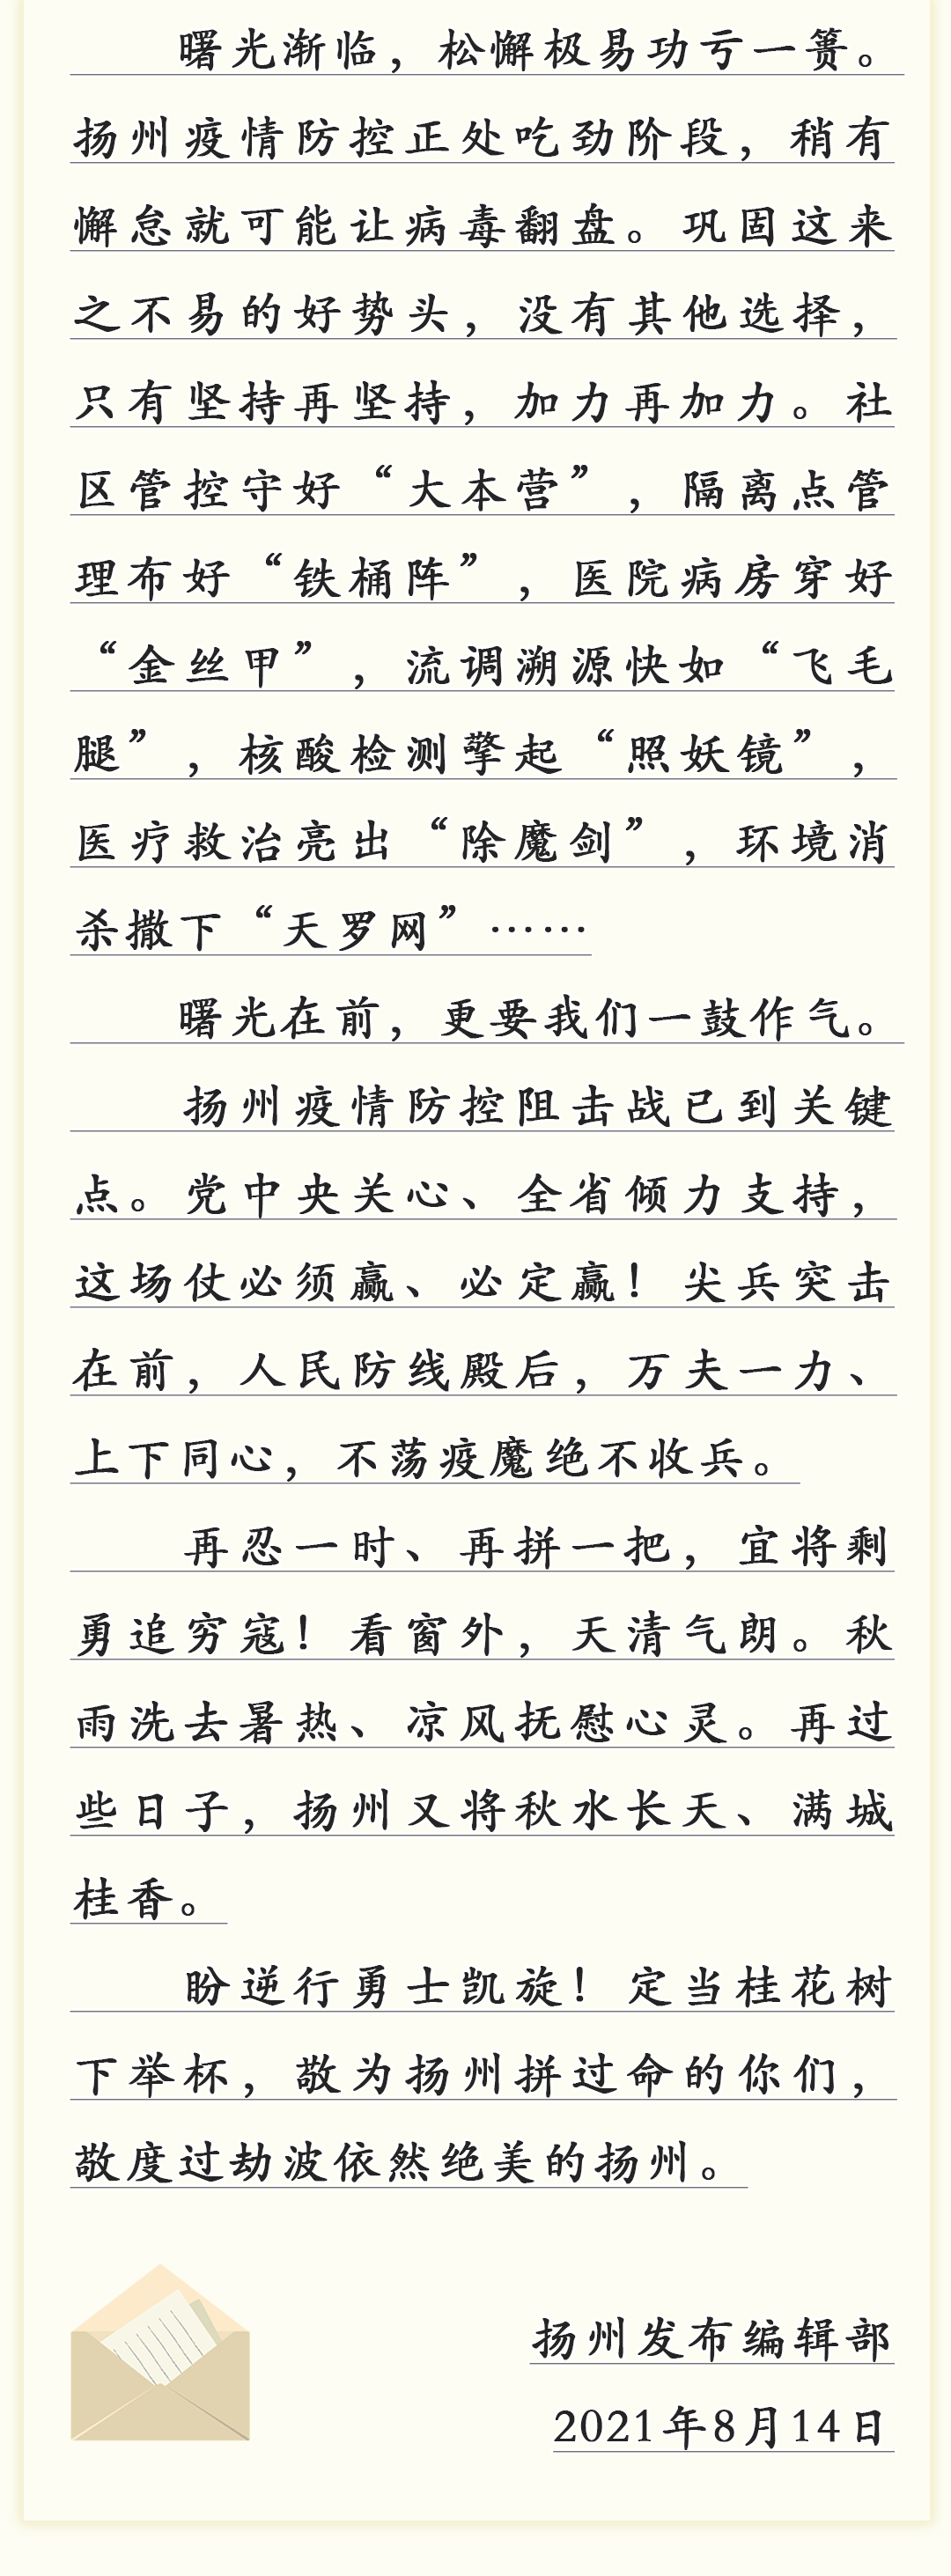 曙光渐临，松懈极易功亏一篑。
扬州疫情防控正处吃劲阶段，稍有
懈怠就可能让病毒翻盘。巩固这来
之不易的好势头，没有其他选择，
只有坚持再坚持，加力再加力。社
区管控守好“大本营”，隔离点管
理布好“铁桶阵”，医院病房穿好
“金丝甲”，流调溯源快如“飞毛
腿”，核酸检测擎起“照妖镜”，
医疗救治亮出“除魔剑”，环境消
杀撒下“天罗网”……
曙光在前，更要我们一鼓作气。
扬州疫情防控阻击战已到关键
点。党中央关心、全省倾力支持，
这场仗必须赢、必定赢！尖兵突击
在前，人民防线殿后，万夫一力、
上下同心，不荡疫魔绝不收兵。
再忍一时、再拼一把，宜将剩
勇追穷寇！看窗外，天清气朗。秋
雨洗去暑热、凉风抚慰心灵。再过
些日子，扬州又将秋水长天、满城
桂香。
盼逆行勇士凯旋！定当桂花树
下举杯，敬为扬州拼过命的你们，
敬度过劫波依然绝美的扬州。
扬州发布编辑部
2021年8月14日